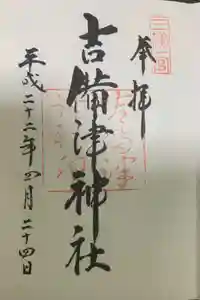 奉拝
三備一宮
吉備津神社
平成二十二年四月二十四日